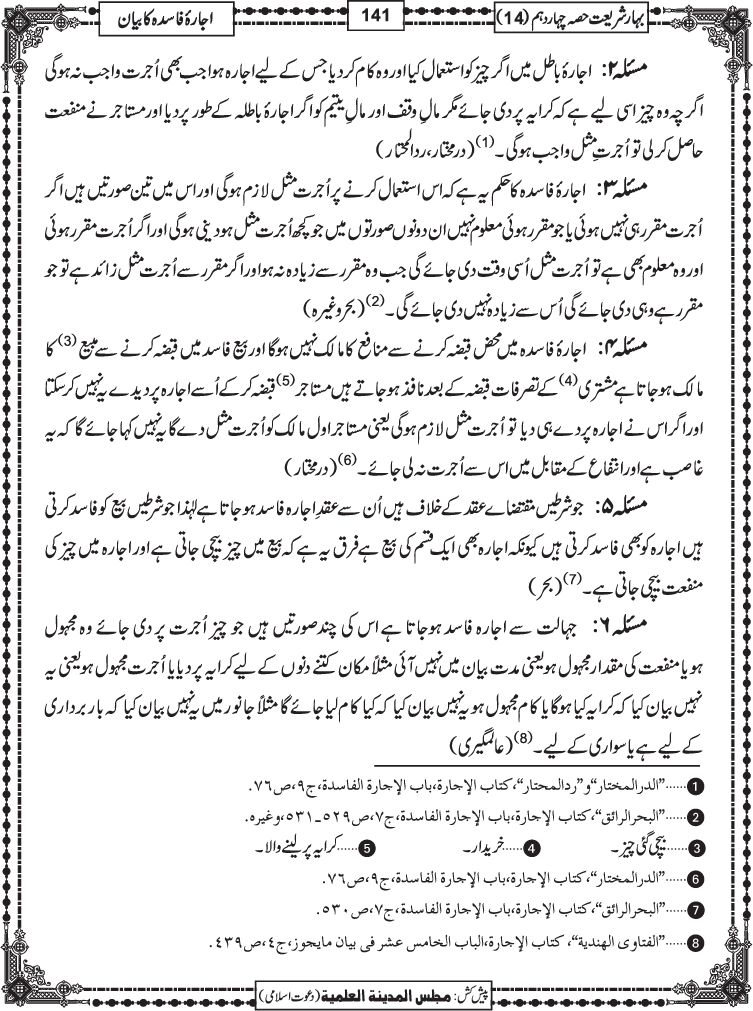 بہار شریعت حصہ چہاردہم (14)
141
اجارۂ فاسدہ کا بیان
مسئلہ ۲: اجارۂ باطل میں اگر چیز کو استعمال کیا اور وہ کام کر دیا جس کے لیے اجارہ ہوا جب بھی اُجرت واجب نہ ہوگی
اگرچہ وہ چیز اسی لیے ہے کہ کرایہ پر دی جائے مگر مالِ وقف اور مالِ یتیم کو اگر اجارۂ باطلہ کے طور پر دیا اور مستاجر نے منفعت
حاصل کر لی تو اُجرتِ مثل واجب ہوگی۔(1) (درمختار، ردالمحتار)
مسئلہ ۳: اجارۂ فاسدہ کا حکم یہ ہے کہ اس استعمال کرنے پر اُجرت مثل لازم ہوگی اور اس میں تین صورتیں ہیں اگر
اُجرت مقرر ہی نہیں ہوئی یا جو مقرر ہوئی معلوم نہیں ان دونوں صورتوں میں جو کچھ اُجرت مثل ہو دینی ہوگی اور اگر اُجرت مقرر ہوئی
اور وہ معلوم بھی ہے تو اُجرت مثل اُسی وقت دی جائے گی جب وہ مقرر سے زیادہ نہ ہو اور اگر مقرر سے اُجرت مثل زائد ہے تو جو
مقرر ہے وہی دی جائے گی اُس سے زیادہ نہیں دی جائے گی۔(2) (بحر وغیرہ)
مسئلہ ۴: اجارۂ فاسدہ میں محض قبضہ کرنے سے منافع کا مالک نہیں ہوگا اور بیع فاسد میں قبضہ کرنے سے مبیع(3) کا
مالک ہو جاتا ہے مشتری(4) کے تصرفات قبضہ کے بعد نافذ ہو جاتے ہیں مستاجر(5) قبضہ کر کے اُسے اجارہ پر دیدے یہ نہیں کر سکتا
اور اگر اس نے اجارہ پر دے ہی دیا تو اُجرت مثل لازم ہوگی یعنی مستاجر اول مالک کو اُجرت مثل دے گا یہ نہیں کہا جائے گا کہ یہ
غاصب ہے اور انتفاع کے مقابل میں اس سے اُجرت نہ لی جائے۔(6) (درمختار)
مسئلہ ۵: جو شرطیں مقتضاے عقد کے خلاف ہیں اُن سے عقدِ اجارہ فاسد ہو جاتا ہے لہٰذا جو شرطیں بیع کو فاسد کرتی
ہیں اجارہ کو بھی فاسد کرتی ہیں کیونکہ اجارہ بھی ایک قسم کی بیع ہے فرق یہ ہے کہ بیع میں چیز بیچی جاتی ہے اور اجارہ میں چیز کی
منفعت بیچی جاتی ہے۔(7) (بحر)
مسئلہ ۶: جہالت سے اجارہ فاسد ہو جاتا ہے اس کی چند صورتیں ہیں جو چیز اُجرت پر دی جائے وہ مجہول
ہو یا منفعت کی مقدار مجہول ہو یعنی مدت بیان میں نہیں آئی مثلاً مکان کتنے دنوں کے لیے کرایہ پر دیا یا اُجرت مجہول ہو یعنی یہ
نہیں بیان کیا کہ کرایہ کیا ہوگا یا کام مجہول ہو یہ نہیں بیان کیا کہ کیا کام لیا جائے گا مثلاً جانور میں یہ نہیں بیان کیا کہ بار برداری
کے لیے ہے یا سواری کے لیے۔(8) (عالمگیری)
1 ......"الدرالمختار" و"ردالمحتار"، کتاب الإجارة، باب الإجارة الفاسدة، ج۹، ص۷۶.
2 ......"البحرالرائق"، کتاب الإجارة، باب الإجارة الفاسدة، ج۷، ص۵۲۹_۵۳۱، وغیره.
3 ......بیچی گئی چیز۔ 4 ......خریدار۔ 5 ......کرایہ پر لینے والا۔
6 ......"الدرالمختار"، کتاب الإجارة، باب الإجارة الفاسدة، ج۹، ص۷۶.
7 ......"البحرالرائق"، کتاب الإجارة، باب الإجارة الفاسدة، ج۷، ص۵۳۰.
8 ......"الفتاوی الهندیة"، کتاب الإجارة، الباب الخامس عشر فی بیان مایجوز، ج٤، ص٤٣٩.
پیش کش: مجلس المدینة العلمیة (دعوت اسلامی)